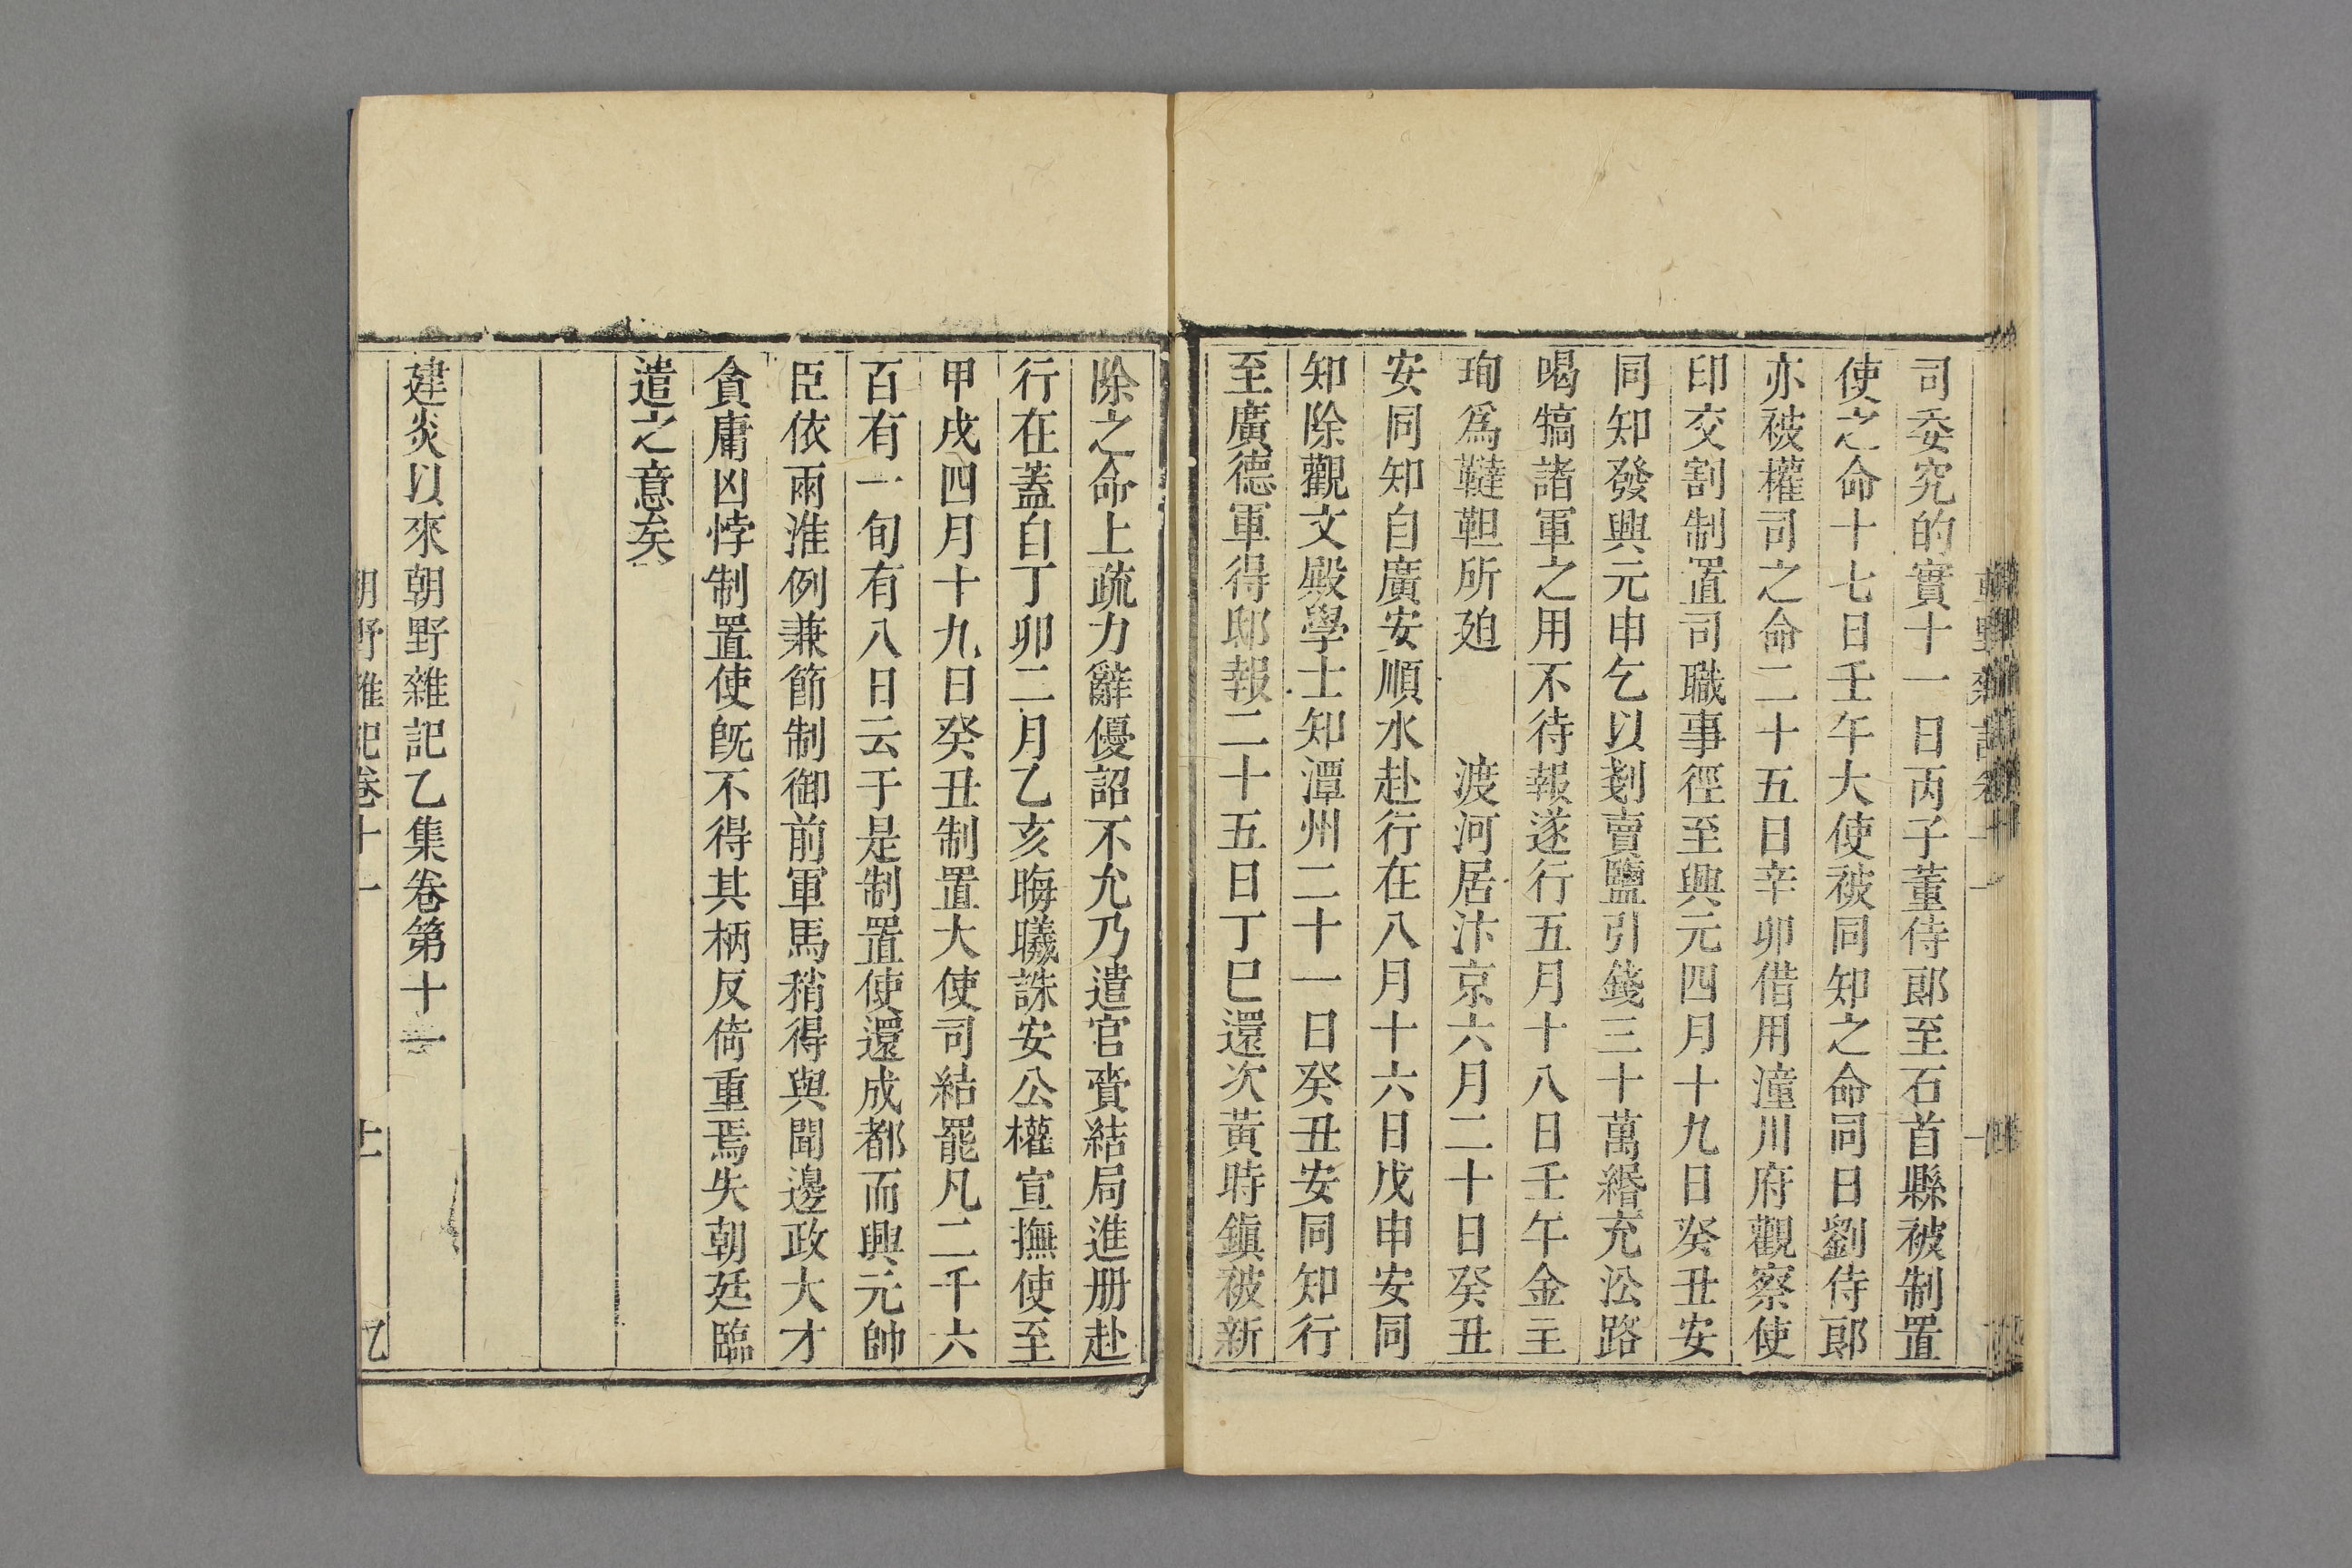 司委究的實十一日丙子董侍郎至石首縣被制置
使之命十七日壬午大使被同知之命同日劉侍郎
亦被權司之命二十五日辛卯借用潼川府觀察使
印交割制置司職事徑至興元四月十九日癸丑安
同知發興元申乞以剗賣鹽引錢三十萬緡充沿路
喝犒諸軍之用不待報遂行五月十八日壬午金主
珣爲韃靼所廹　　渡河居汴京六月二十日癸丑
安同知自廣安順水赴行在八月十六日戊申安同
知除觀文殿學士知潭州二十一日癸丑安同知行
至廣德軍得邸報二十五日丁巳還次黃時鎮被新
除之命上疏力辭優詔不允乃遣官賫結局進册赴
行在蓋自丁卯二月乙亥晦曦誅安公權宣撫使至
甲戌四月十九日癸丑制置大使司結罷凡二千六
百有一旬有八日云于是制置使還成都而興元帥
臣依兩淮例兼節制御前軍馬稍得與聞邊政大才
貪庸凶悖制置使旣不得其柄反倚重焉失朝廷臨
遣之意矣
建炎以來朝野雜記乙集卷第十一
朝野雜記卷十一